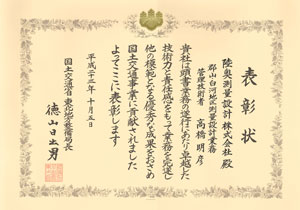 表彰状
陸奥測量設計株式会社殿
郡山白河地区測量設計業務
管理技術者 高橋明彦
貴社は頭書業務の遂行にあたり卓越した
技術力と責任感をもって業務を完遂し
他の模範となる優秀な成果をおさめ
国土交通事業に貢献されました
よってここに表彰します
平成二十三年十月五日
国土交通省 東北地方整備局長
徳山日出男